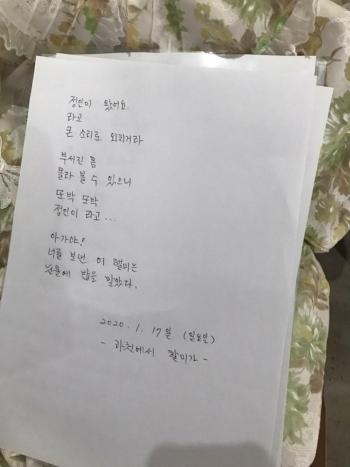 정인이 왔어요.
라고
큰 소리로 외치거라
부서진 몸
몰라 볼 수 있으니
또박 또박
정인이 라고...
아가야!
너를 보면 이 할미는
눈물에 밥을 말았다.
2020. 1. 17일 (일요일)
- 과천에서 할미가 -